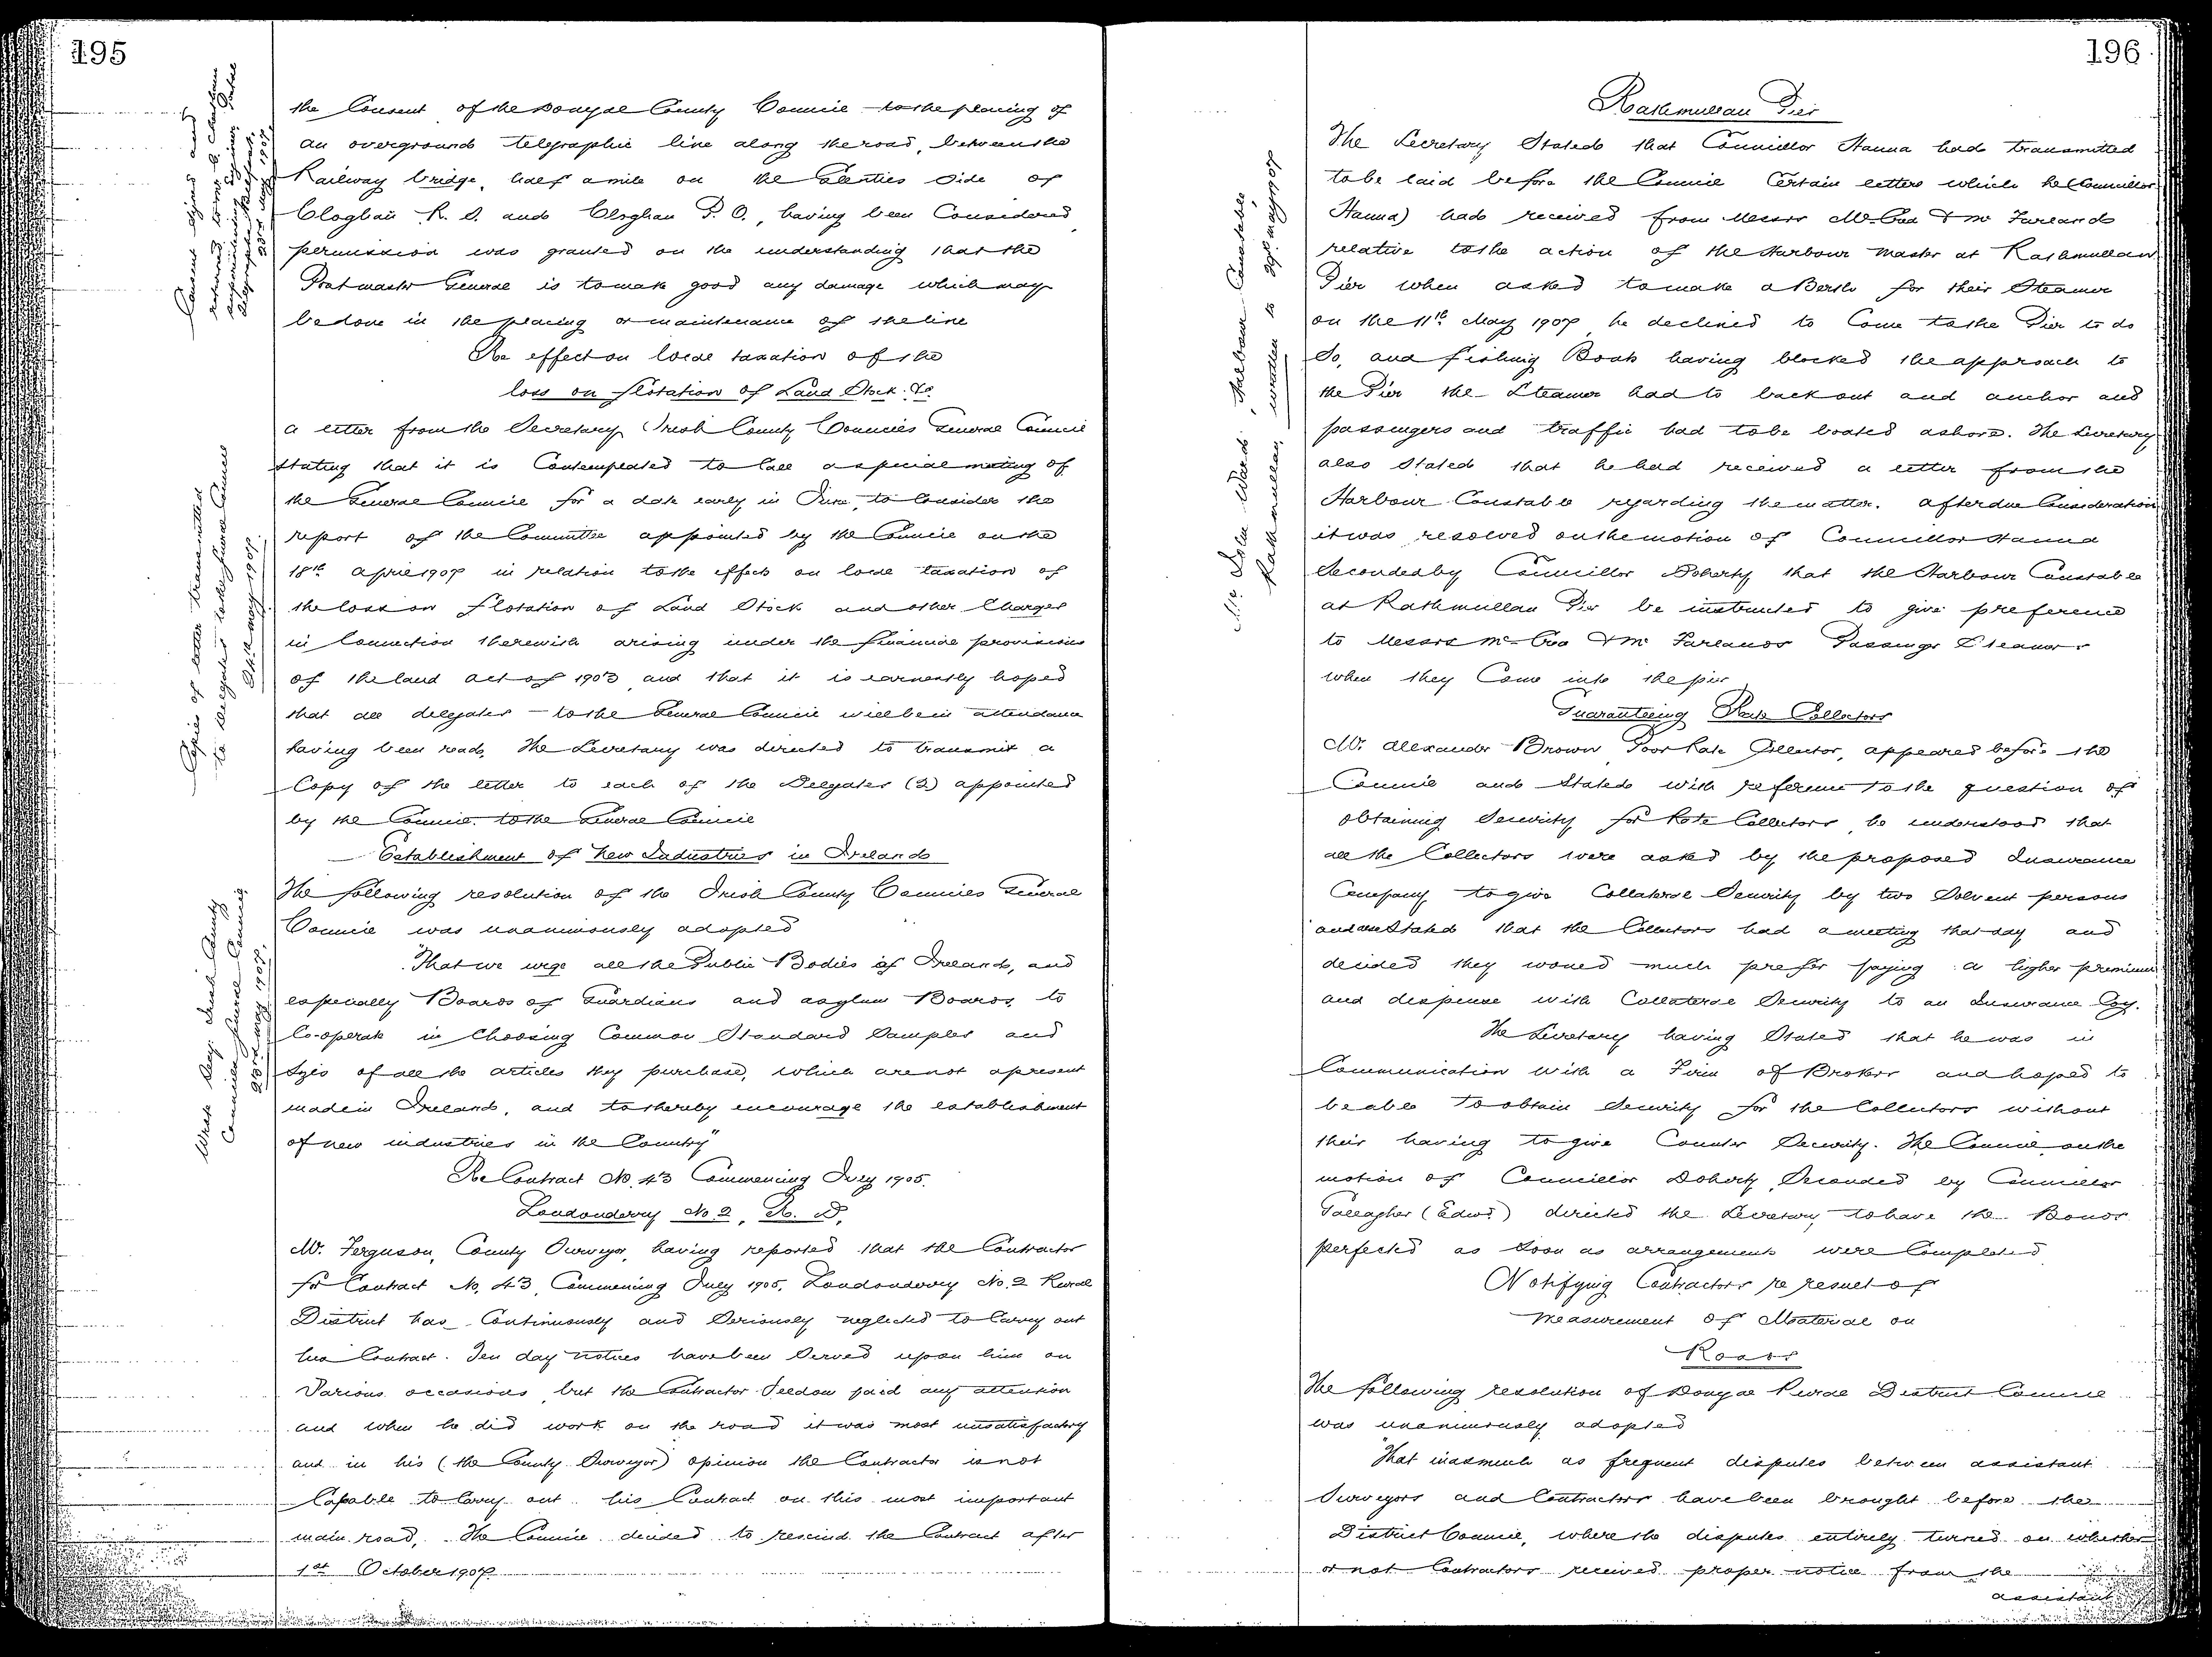 195
the Consent of the Donegal County Council to the placing of
an overground telegraphic line along the road, between the
Railway bridge, half a mile on the Glenties side of
Cloghan R. S. and Cloghan P. O., having been Considered
permission was granted on the understanding that the
Postmaster General is to make good any damage which may
be done in the placing or maintenance of the line
Re effect on local taxation of the
loss on flotation of Land Stock &c
A letter from the Secretary Irish County Councils General Council
stating that it is Contemplated to Call a special meeting of
the General Council for a date early in June, to Consider the
report of the Committee appointed by the Council on the
18th April 1907 in relation to the effects on local taxation of
the loss on flotation of Land Stock and other Charges
in Connection therewith arising under the financial provisions
of the land act of 1903 and that it is earnestly hoped
that all delegates to the General Council will be in attendance
having been read, The Secretary was directed to transmit a
Copy of the letter to each of the Delegates (2) appointed
by the Council to the General Council
Establishment of New Industries in Ireland
The following resolution of the Irish County Councils General
Council was unanimously adopted
"That we urge all the Public Bodies of Ireland, and
especially Boards of Guardians and asylum Boards, to
Co-operate in Choosing Common Standard Samples and
Sizes of all the articles they purchase, which are not apresent
made in Ireland, and to thereby encourage the establishment
of new industries in the Country"
Re Contract No. 43 Commencing July 1905.
Londonderry No. 2, R. D.
Mr. Ferguson, County Surveyor, having reported that the Contractor
for Contract No. 43, Commencing July 1905, Londonderry No. 2 Rural
District has Continuously and Seriously neglected to Carry out
his Contract. Ten day notices have been Served upon him on
Various occasions but the Contractor Seldom paid any attention
and when he did work on the road it was most unsatisfactory
and in his (the County Surveyor) opinion the Contractor is not
Capable to Carry out his Contract on this most important
main road, The Council decided to rescind the Contract after
1st October 1907
Copies of letter transmitted
to Delegates to the General Council
May 1907.
Wrote Secy. Irish County
Councils General Council
23rd May 1907.
196
Rathmullan Pier
The Secretary Stated that Councillor Hanna had transmitted
to be laid before the Council Certain letters which he (Councillor
Hanna) had received from Messrs McCrea & McFarland
relative to the action of the Harbour Master at Rathmullan
Pier when asked to make a Berth for their Steamer
on the 11th May 1907 he declined to Come to the Pier to do
So, and fishing Boats having blocked the approach to
the Pier the Steamer had to back out and anchor and
passengers and traffic had to be boated ashore. The Secretary
also Stated that he had received a letter from the
Harbour Constable regarding the matter. after due Consideration
it was resolved on the motion of Councillor Hanna
Seconded by Councillor Doherty that the Harbour Constable
at Rathmullan Pier be instructed to give preference
to Messrs McCrea & McFarlands Passenger Steamers
when they Come into the pier
Mr. John Ward, Harbour Constable,
Rathmullan, written to 29th May 1907
Guaranteeing Rate Collectors
Mr. Alexander Brown Poor Rate Collector, appeared before the
Council and Stated with reference to the question of
obtaining Security for Rate Collectors he understood that
all the Collectors were asked by the proposed Insurance
Company to give Collateral Security by two Solvent persons
and also Stated that the Collectors had a meeting that day and
decided they would much prefer paying a higher premium
and dispense with Collateral Security to an Insurance Coy.
The Secretary having Stated that he was in
Communication with a Firm of Brokers and hoped to
be able to obtain Security for the Collectors without
their having to give Counter Security. The Council on the
motion of Councillor Doherty Seconded by Councillor
Gallagher (Edwd.) directed the Secretary to have the Bonds
perfected as Soon as arrangements were Completed
Notifying Contractors re result of
measurement of Material on
Roads
The following resolution of Donegal Rural District Council
was unanimously adopted
"That inasmuch as frequent disputes between assistant
Surveyors and Contractors have been brought before the
District Council, where the disputes entirely turned on whether
or not Contractors received proper notice from the
assistant